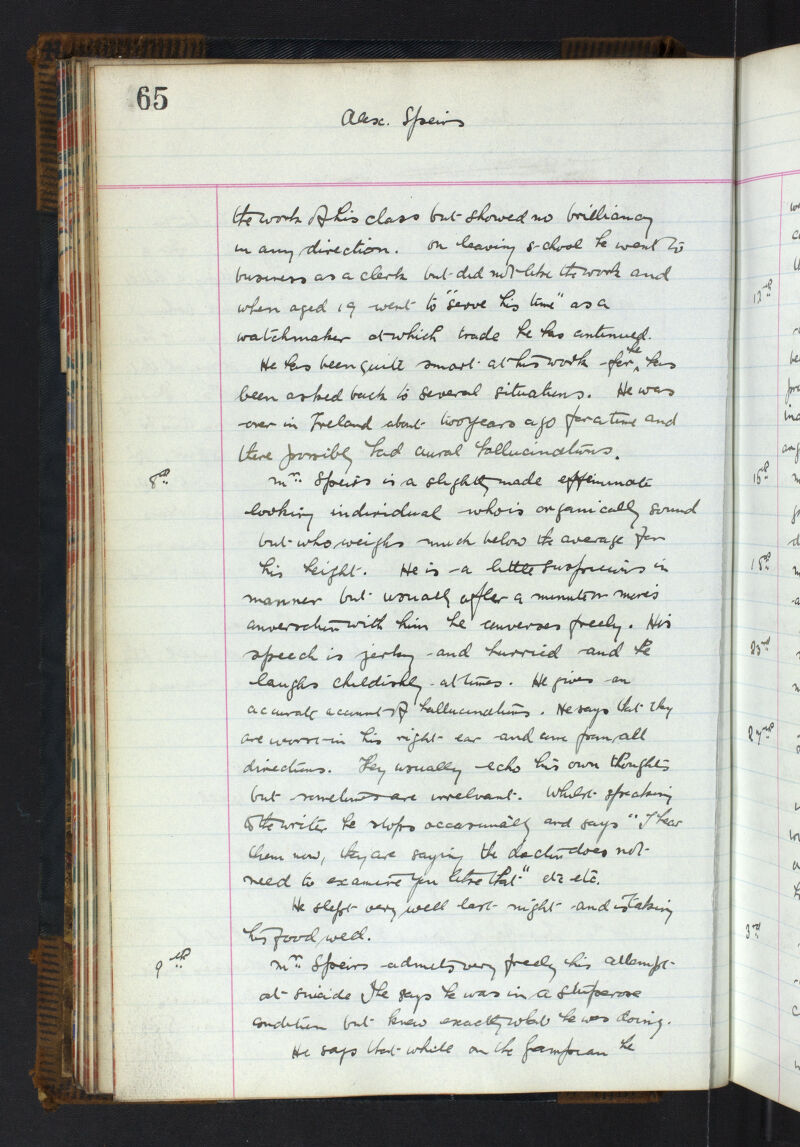 65
Alex. Speirs
the work of his class but showed no brilliancy
in any direction. On leaving school he went to
business as a clerk but did not like the work and
when aged 19 went to "serve his time" as a
watchmaker at which trade he has continued.
He has been quite smart at his work for he has
been asked back to several situations. He was
over in Ireland about two years ago for a time and
there possibly had aural hallucinations.
8th
Mr. Speirs is a slightly made effeminate
looking individual who is organically sound
but who weighs much below the average for
his height. He is a little suspicious in
manner but usually after a minute or more's
conversation with him he converses freely. His
speech is jerky and hurried and he
laughs childishly at times. He gives an
accurate account of hallucinations. He says that they
are worse in his right ear and come from all
directions. They usually echo his own thoughts
but sometimes are irrelevant. Whilst speaking
to the writer he stops occasionally and says "I hear
them now, they are saying the doctor does not
need to examine you like that" etc etc.
He slept very well last night and is taking
his food well.
9th
Mr. Speirs admits very freely his attempt
at suicide. He says he was in a stuporose
condition but knew exactly what he was doing.
He says that while on the Grampian he
12th
16th
18th
23rd
27th
3rd